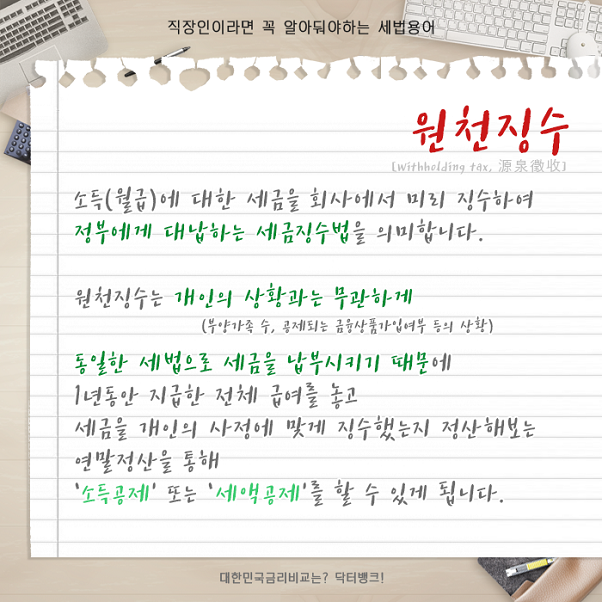 직장인이라면 꼭 알아둬야하는 세법용어
원천징수
[Withholding tax, 源泉徵收]
소득(월급)에 대한 세금을 회사에서 미리 징수하여
정부에게 대납하는 세금징수법을 의미합니다.
원천징수는 개인의 상황과는 무관하게
(부양가족 수, 공제되는 금융상품가입여부 등의 상황)
동일한 세법으로 세금을 납부시키기 때문에
1년동안 지급한 전체 급여를 놓고
세금을 개인의 사정에 맞게 징수했는지 정산해보는
연말정산을 통해
'소득공제' 또는 '세액공제'를 할 수 있게 됩니다.
대한민국금리비교는? 닥터뱅크!